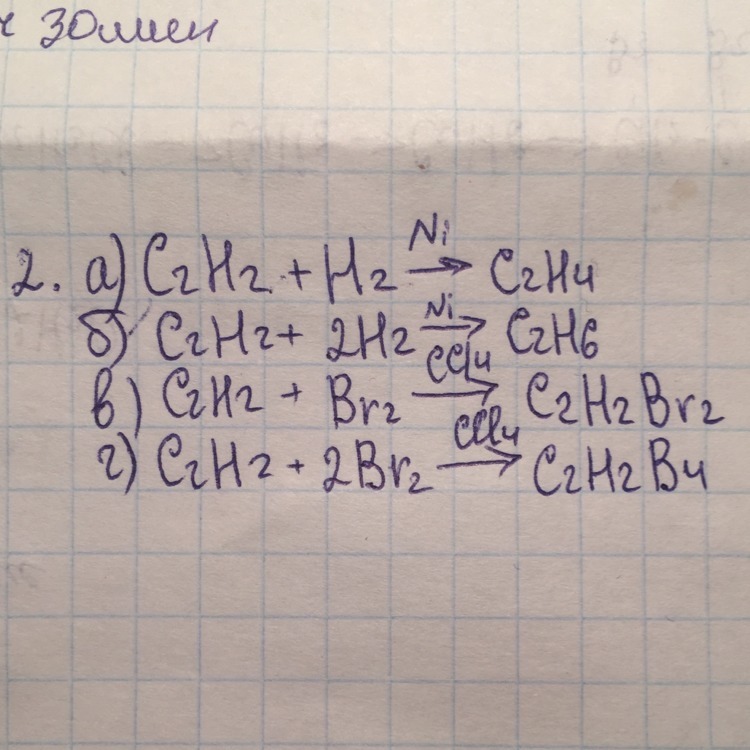 30мин
2. а) C₂H₂ + H₂ —Ni→ C₂H₄
б) C₂H₂ + 2H₂ —Ni→ C₂H₆
в) C₂H₂ + Br₂ —CCl₄→ C₂H₂Br₂
г) C₂H₂ + 2Br₂ —CCl₄→ C₂H₂B₄